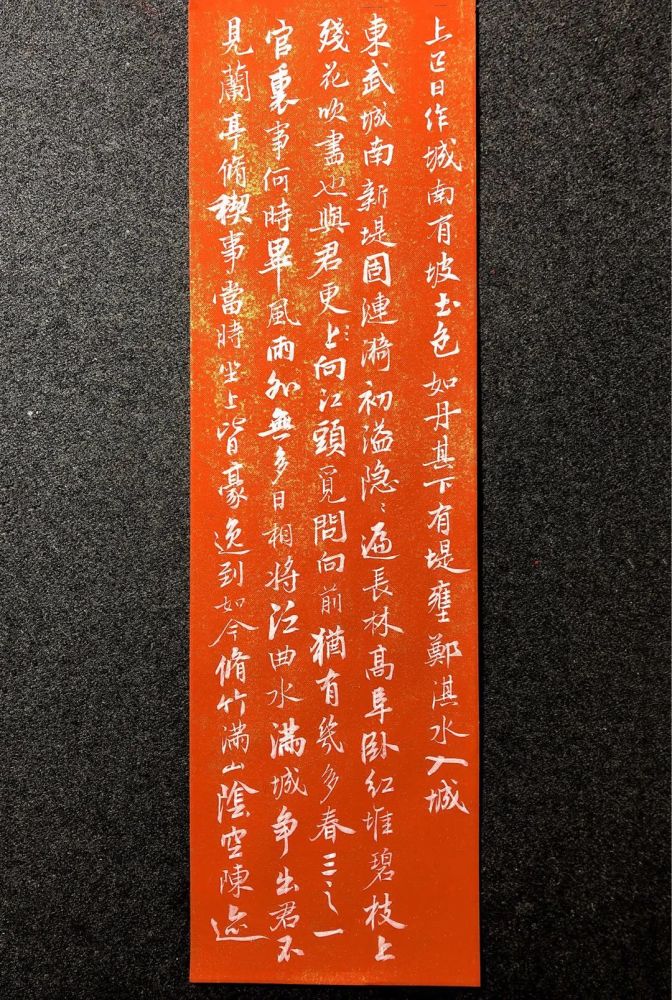 上巳日作城南有坡土色如丹其下有堤壅鄭淇水入城
東武城南新堤固漣漪初溢隐〻遍長林高阜卧紅堆碧枝上
殘花吹盡也與君更上向江頭覓問向前猶有幾多春三之一
官裏事何時畢風雨外無多日相將泛曲水滿城争出君不
見蘭亭脩禊事當時坐上皆豪逸到如今脩竹满山陰空陳迹